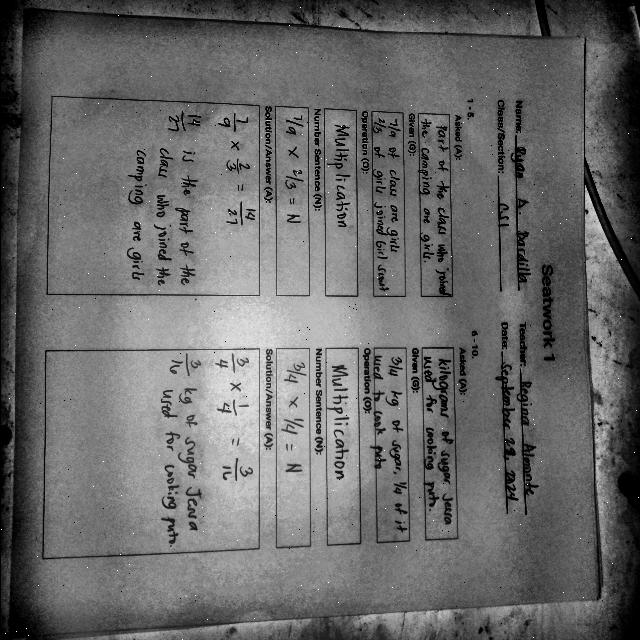 Seatwork 1
Name: Ryan A. Teacher: Regina
Class/Section: Date: September
1-5.
Asked (A):
Part of the class who joined
the camping are girls.
Given (G):
7/9 of class are girls
2/3 of girls joined Girl Scout
Operation (O):
Multiplication
Number Sentence (N):
7/9 x 2/3 = N
Solution/Answer (A):
7/9 x 2/3 = 14/27
14/27 is the part of the
class who joined the
camping are girls
6-10.
Asked (A):
kilograms of sugar Jacea
used for cooking puto.
Given (G):
3/4 kg of sugar, 1/4 of it
used to cook puto
Operation (O):
Multiplication
Number Sentence (N):
3/4 x 1/4 = N
Solution/Answer (A):
3/4 x 1/4 = 3/16
3/16 kg of sugar Jacea
used for cooking puto.